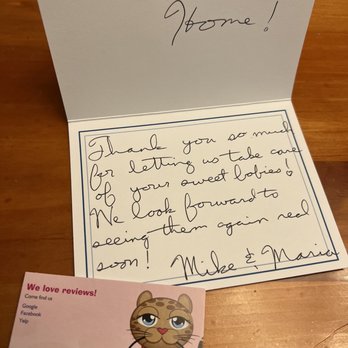 Home!
Thank you so much
for letting us take care
of your sweet babies!
We look forward to
seeing them again real
soon! Mike & Maria
We love reviews!
Come find us
Google
Facebook
Yelp